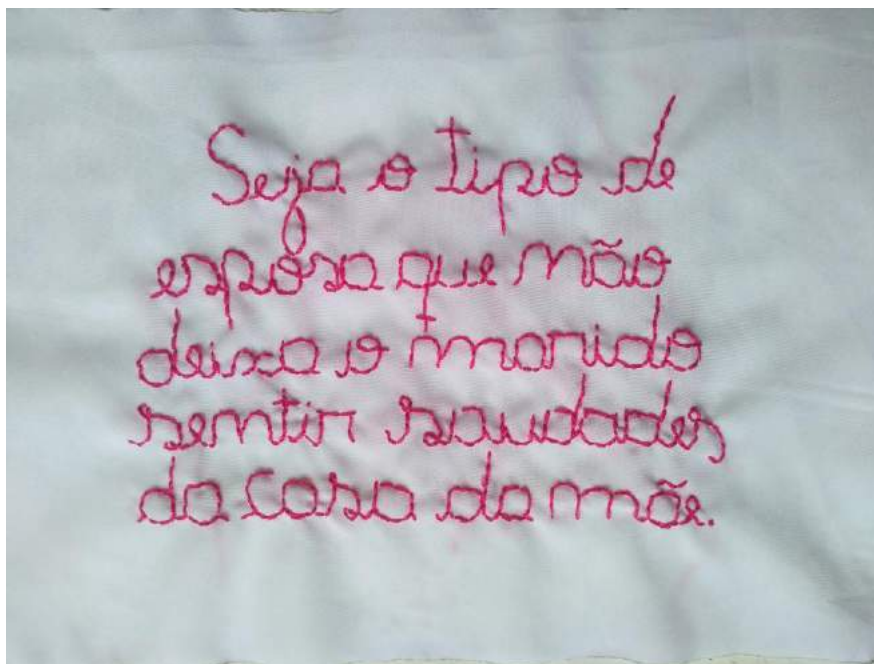 Seja o tipo de
esposa que não
deixa o marido
sentir saudades
da casa da mãe.